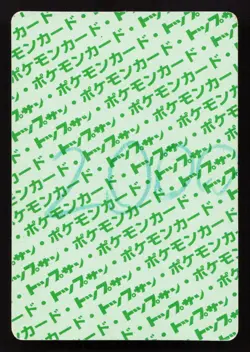 ポケモンカード・
トップサン・ポケモンカード・
ポケモンカード・トップサン・
トップサン・ポケモンカード・
ポケモンカード・トップサン・
トップサン・ポケモンカード・
ポケモンカード・トップサン・
2000
トップサン・ポケモンカード・
ポケモンカード・トップサン・
トップサン・ポケモンカード・
ポケモンカード・トップサン・
トップサン・ポケモンカード・
ポケモンカード・トップサン・
トップサン・ポケモンカード・
ポケモンカード・
トップサン・